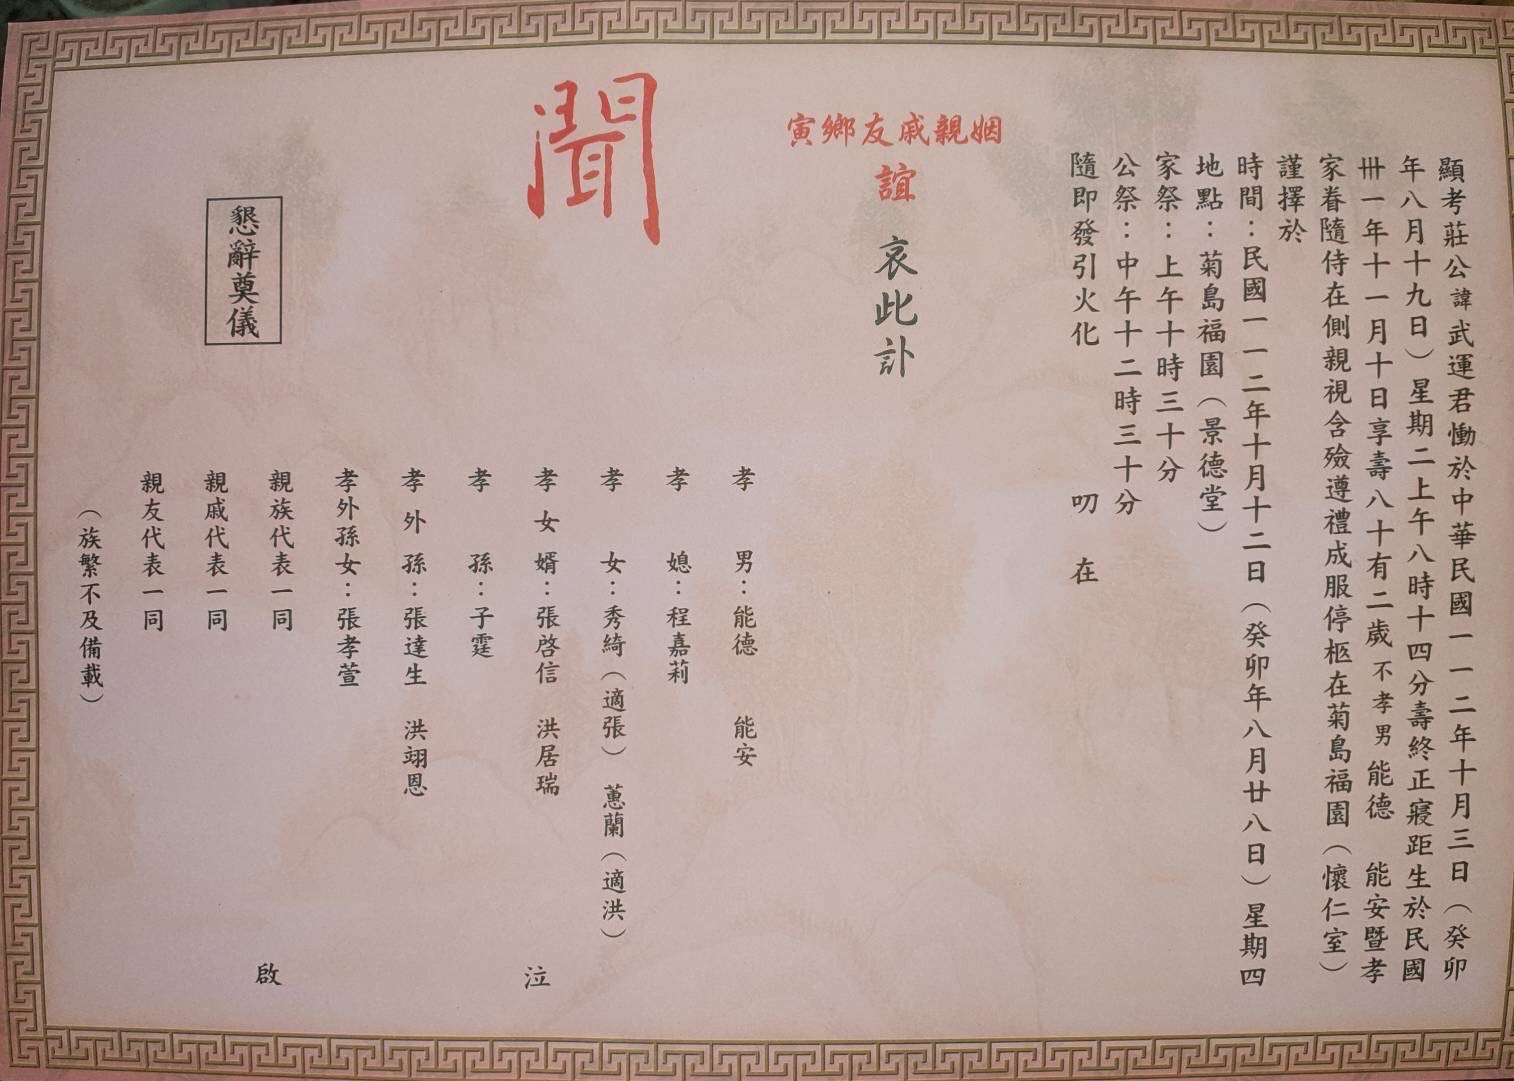 顯考莊公諱武運君慟於中華民國一一二年十月三日（癸卯
年八月十九日）星期二上午八時十四分壽終正寢距生於民國
卅一年十一月十日享壽八十有二歲不孝男能德　能安暨孝
家眷隨侍在側親視含殮遵禮成服停柩在菊島福園（懷仁室）
謹擇於
時間：民國一一二年十月十二日（癸卯年八月廿八日）星期四
地點：菊島福園（景德堂）
家祭：上午十時三十分
公祭：中午十二時三十分
隨即發引火化　叨　在
姻親戚友鄉寅
誼
哀此訃
聞
孝　男：能德　能安
孝　媳：程嘉莉
孝　女：秀綺（適張）　蕙蘭（適洪）
孝女婿：張啓信　洪居瑞
孝　孫：子霆
孝外孫：張達生　洪翊恩
孝外孫女：張孝萱
親族代表一同
親戚代表一同
親友代表一同
（族繁不及備載）
泣
啟
懇辭奠儀